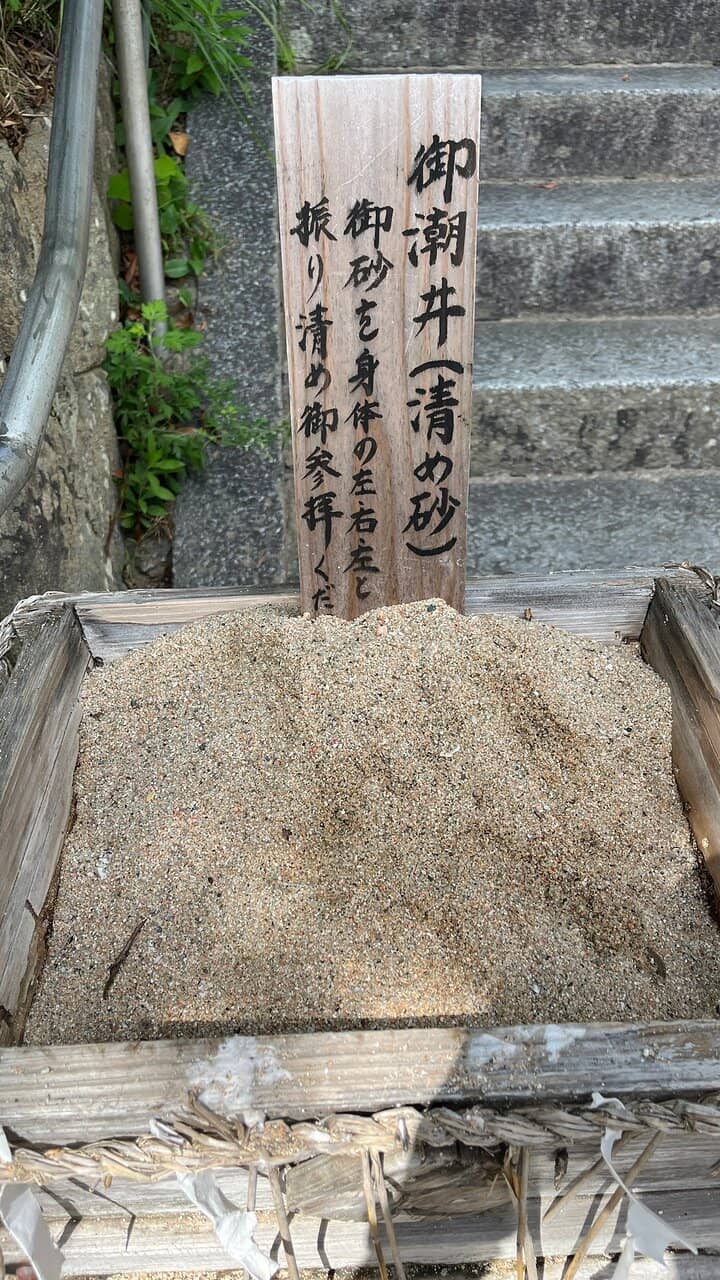 御潮井(清め砂)
御砂を身体の左・右・左と
振り清め御参拝くだ